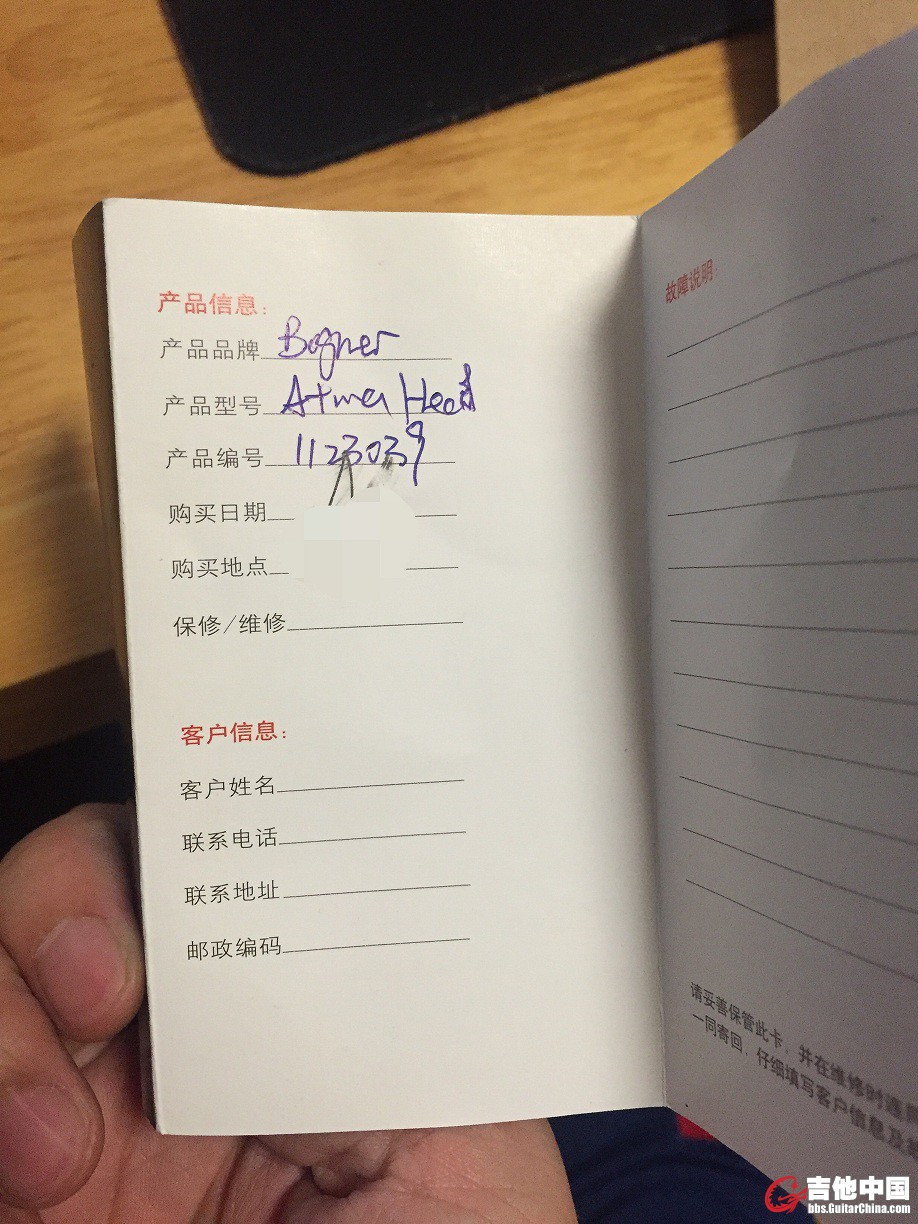 产品信息:
产品品牌 Bogner
产品型号 Atma Head
产品编号 1123039
购买日期
购买地点
保修/维修
客户信息:
客户姓名
联系电话
联系地址
邮政编码
故障说明:
请妥善保管此卡,并在维修时
一同寄回,仔细填写客户信息及
吉他中国
bbs.GuitarChina.com